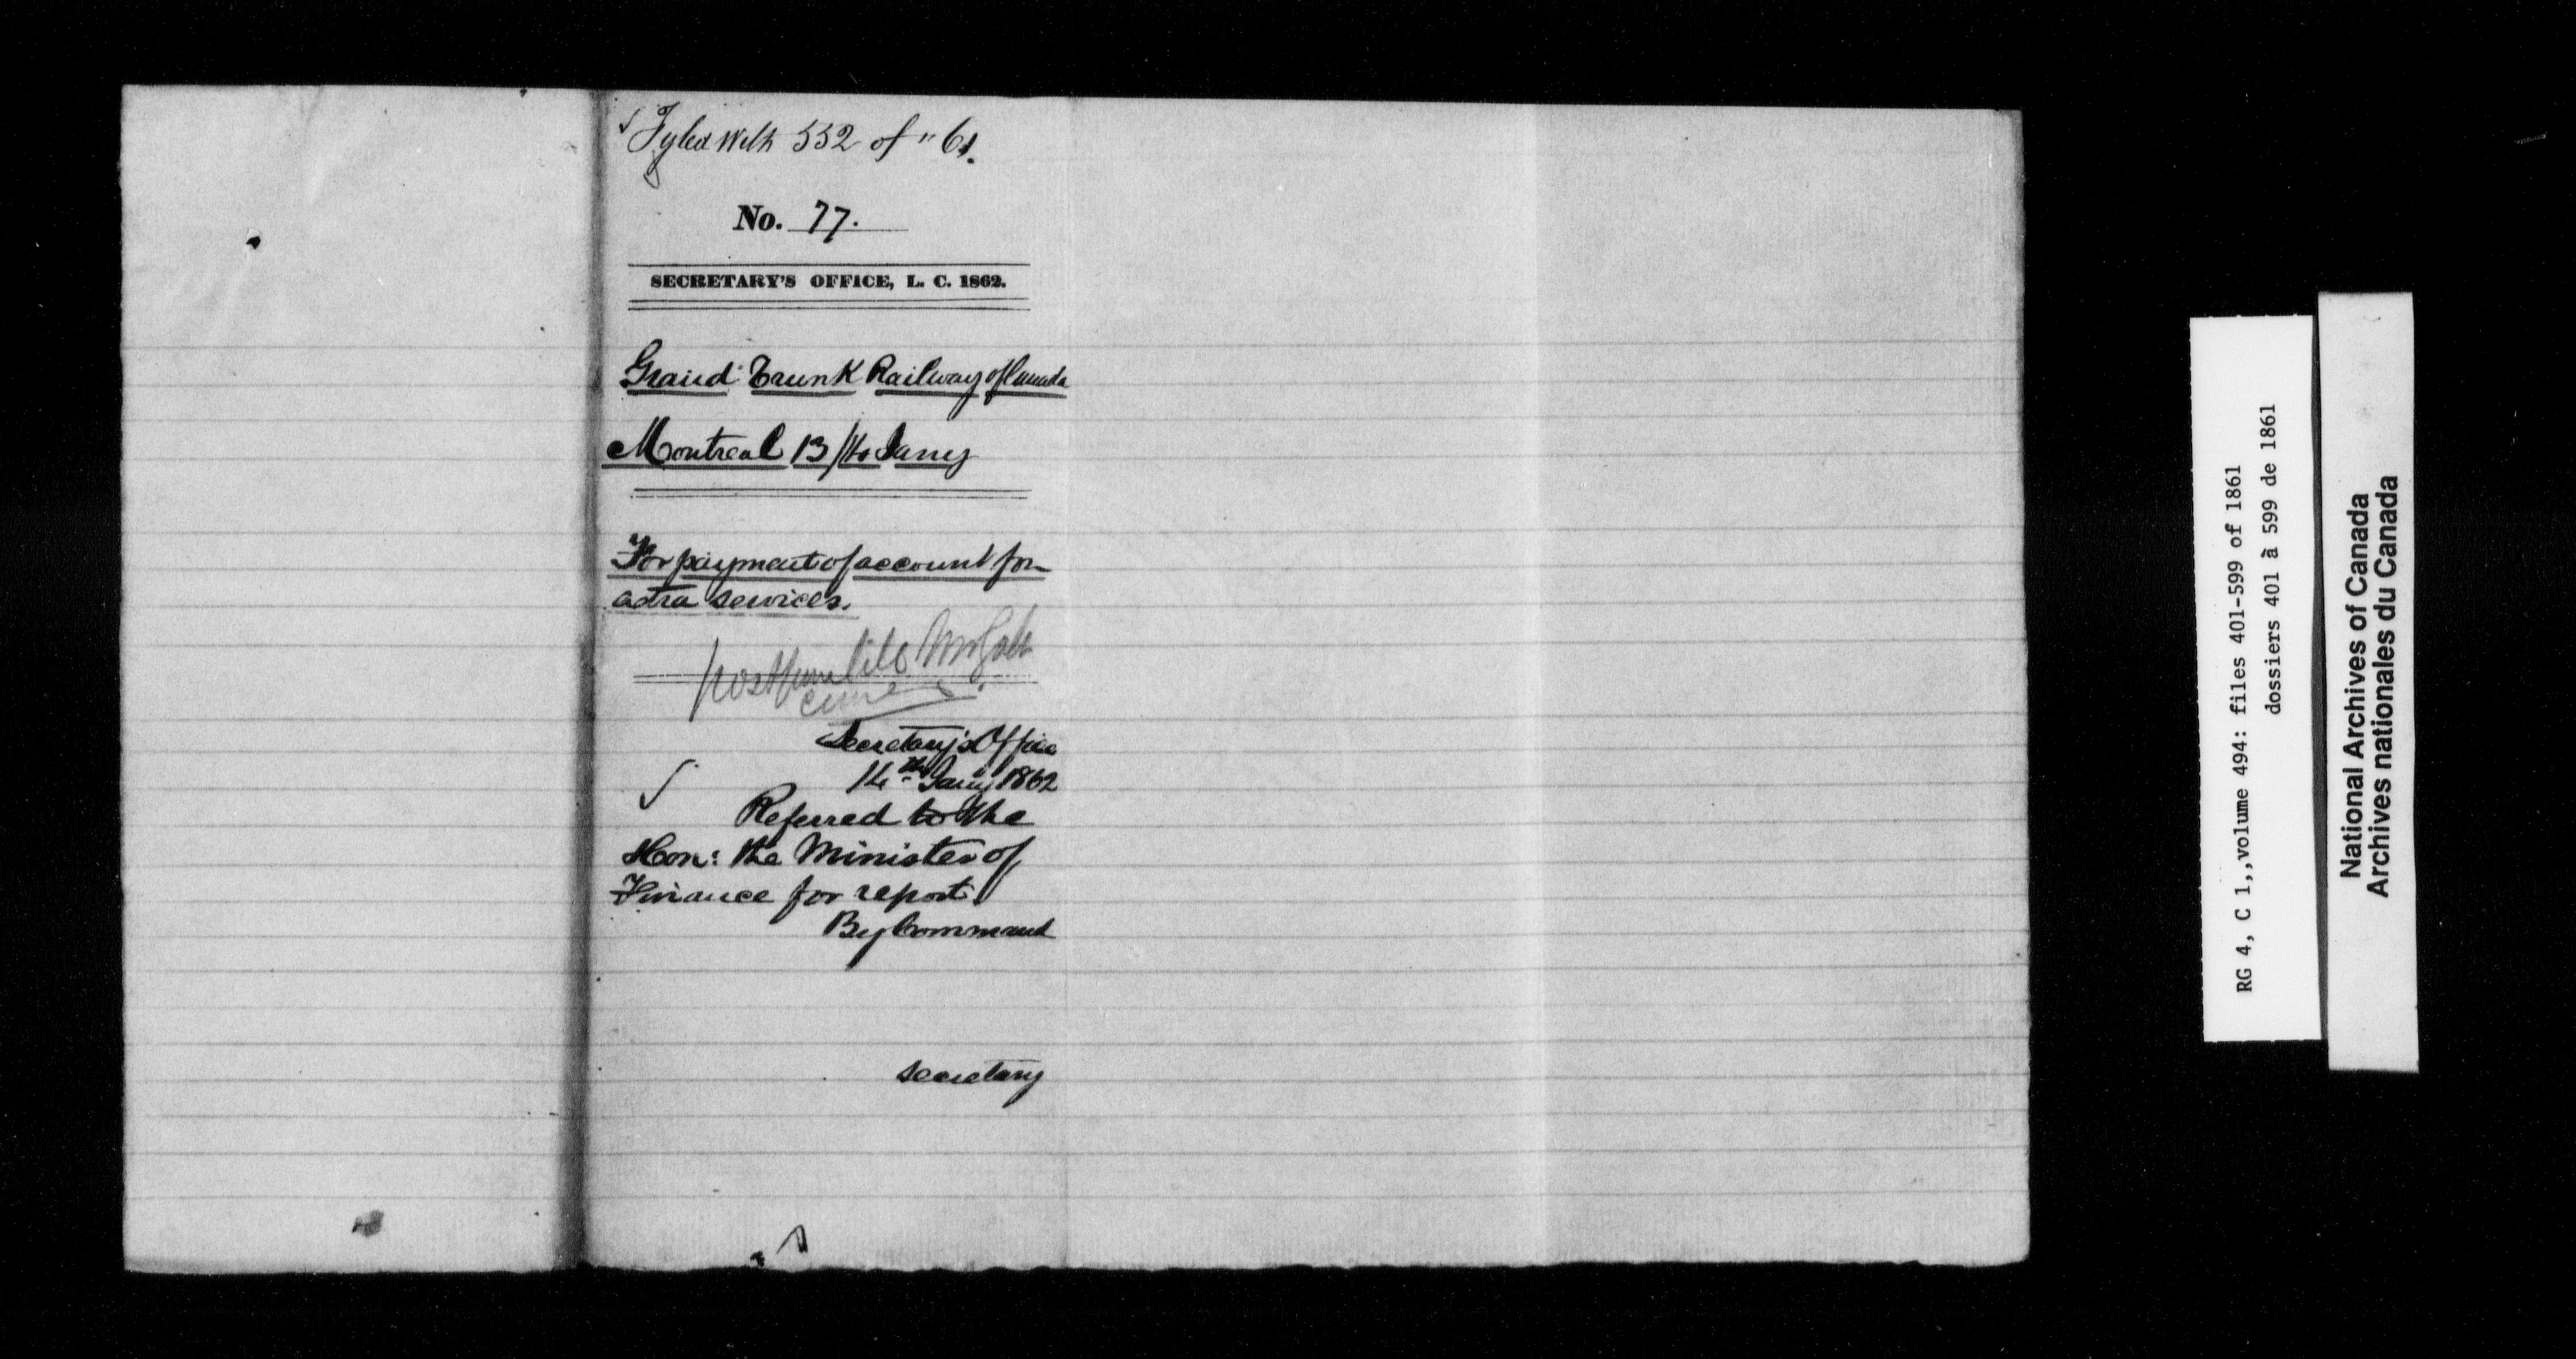 Fyled with 552 of "61.
No. 77.
SECRETARY'S OFFICE, L. C. 1862.
Grand Trunk Railway of Canada
Montreal 13/14 Jany
For payment of account for
extra services.
postpone till Mr Galt
Secretary's Office
14th Jany 1862
Referred to the
Hon: the Minister of
Finance for report
By Command
Secretary
RG 4, C 1,,volume 494: files 401-599 of 1861
dossiers 401 à 599 de 1861
National Archives of Canada
Archives nationales du Canada